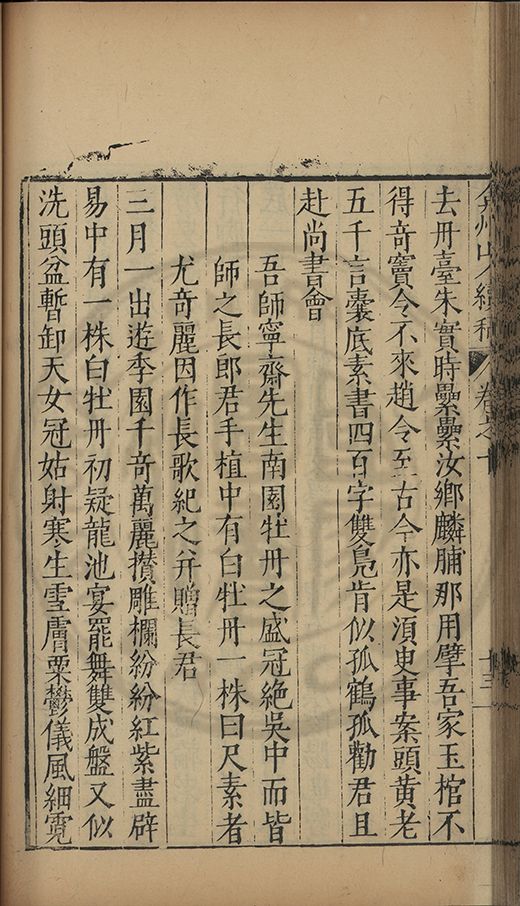 弇州山人續稿 卷之十 十三
去丹臺朱實時纍纍汝鄉麟脯那用擘吾家玉棺不
得竒竇令不來趙令至古今亦是須史事案頭黃老
五千言囊底素書四百字雙鳧肯似孤鶴孤勸君且
赴尚書會
吾師寧齋先生南園牡丹之盛冠絶吳中而皆
師之長郎君手植中有白牡丹一株曰尺素者
尤竒麗因作長歌紀之并贈長君
三月一出遊季園千竒萬麗攅雕欄紛紛紅紫盡辟
易中有一株白牡丹初疑龍池宴罷舞雙成盤又似
洗頭盆暫卸天女冠姑射寒生雪膚粟鬱儀風細霓